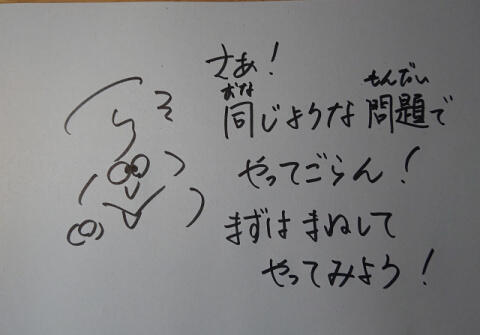 さあ!
おな もんだい
同じような問題で
やってごらん!
まずは まねして
やってみよう!